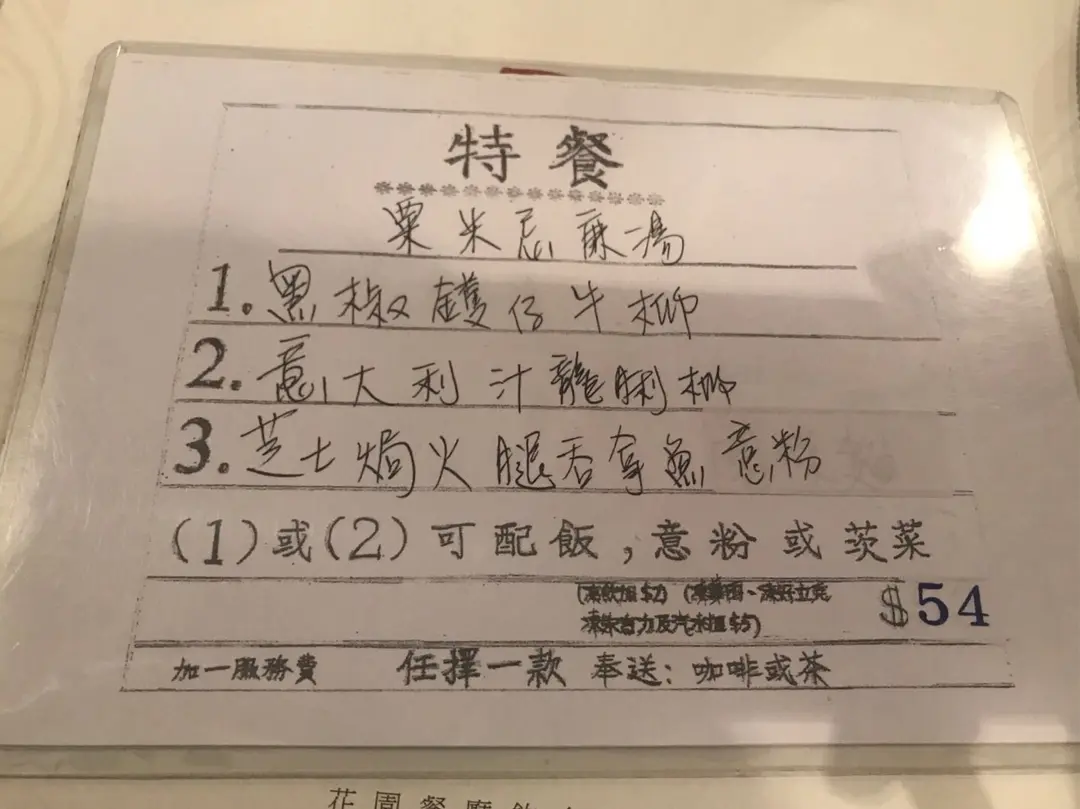 特餐
粟米忌廉湯
1. 黑椒鑊仔牛柳
2. 意大利汁龍脷柳
3. 芝士焗火腿吞拿魚意粉
(1)或(2)可配飯,意粉或茨菜
(凍飲加$2) (凍華田、凍好立克
凍朱古力及汽水加$5)
$54
加一服務費 任擇一款 奉送:咖啡或茶
花園餐廳